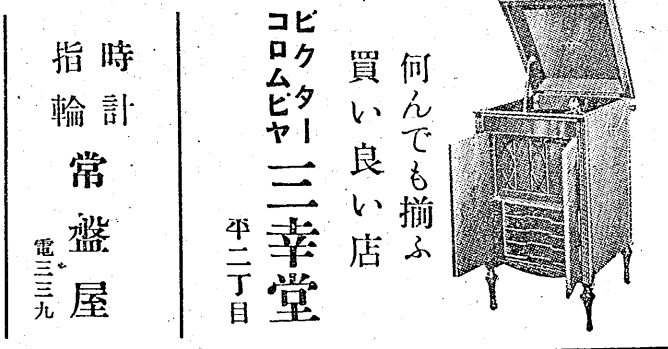 何んでも揃ふ
買い良い店
ビクター
コロムビヤ
三幸堂
平二丁目
時計
指輪
常盤屋
電三三九